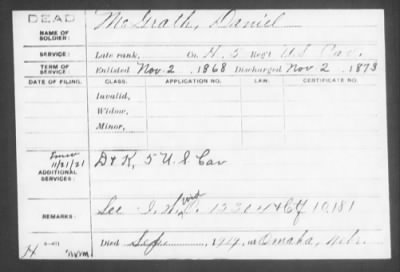 DEAD
NAME OF SOLDIER: McGrath, Daniel
SERVICE: Late rank, Co. H, 5 Reg't U.S. Cav.
TERM OF SERVICE: Enlisted Nov. 2, 1868 Discharged Nov 2, 1873
DATE OF FILING. CLASS. APPLICATION NO. LAW. CERTIFICATE NO.
Invalid,
Widow,
Minor,
11/21/21
ADDITIONAL SERVICES: D & K, 5 U.S Cav
REMARKS: See I. W.
Died, at Omaha, Nebr.